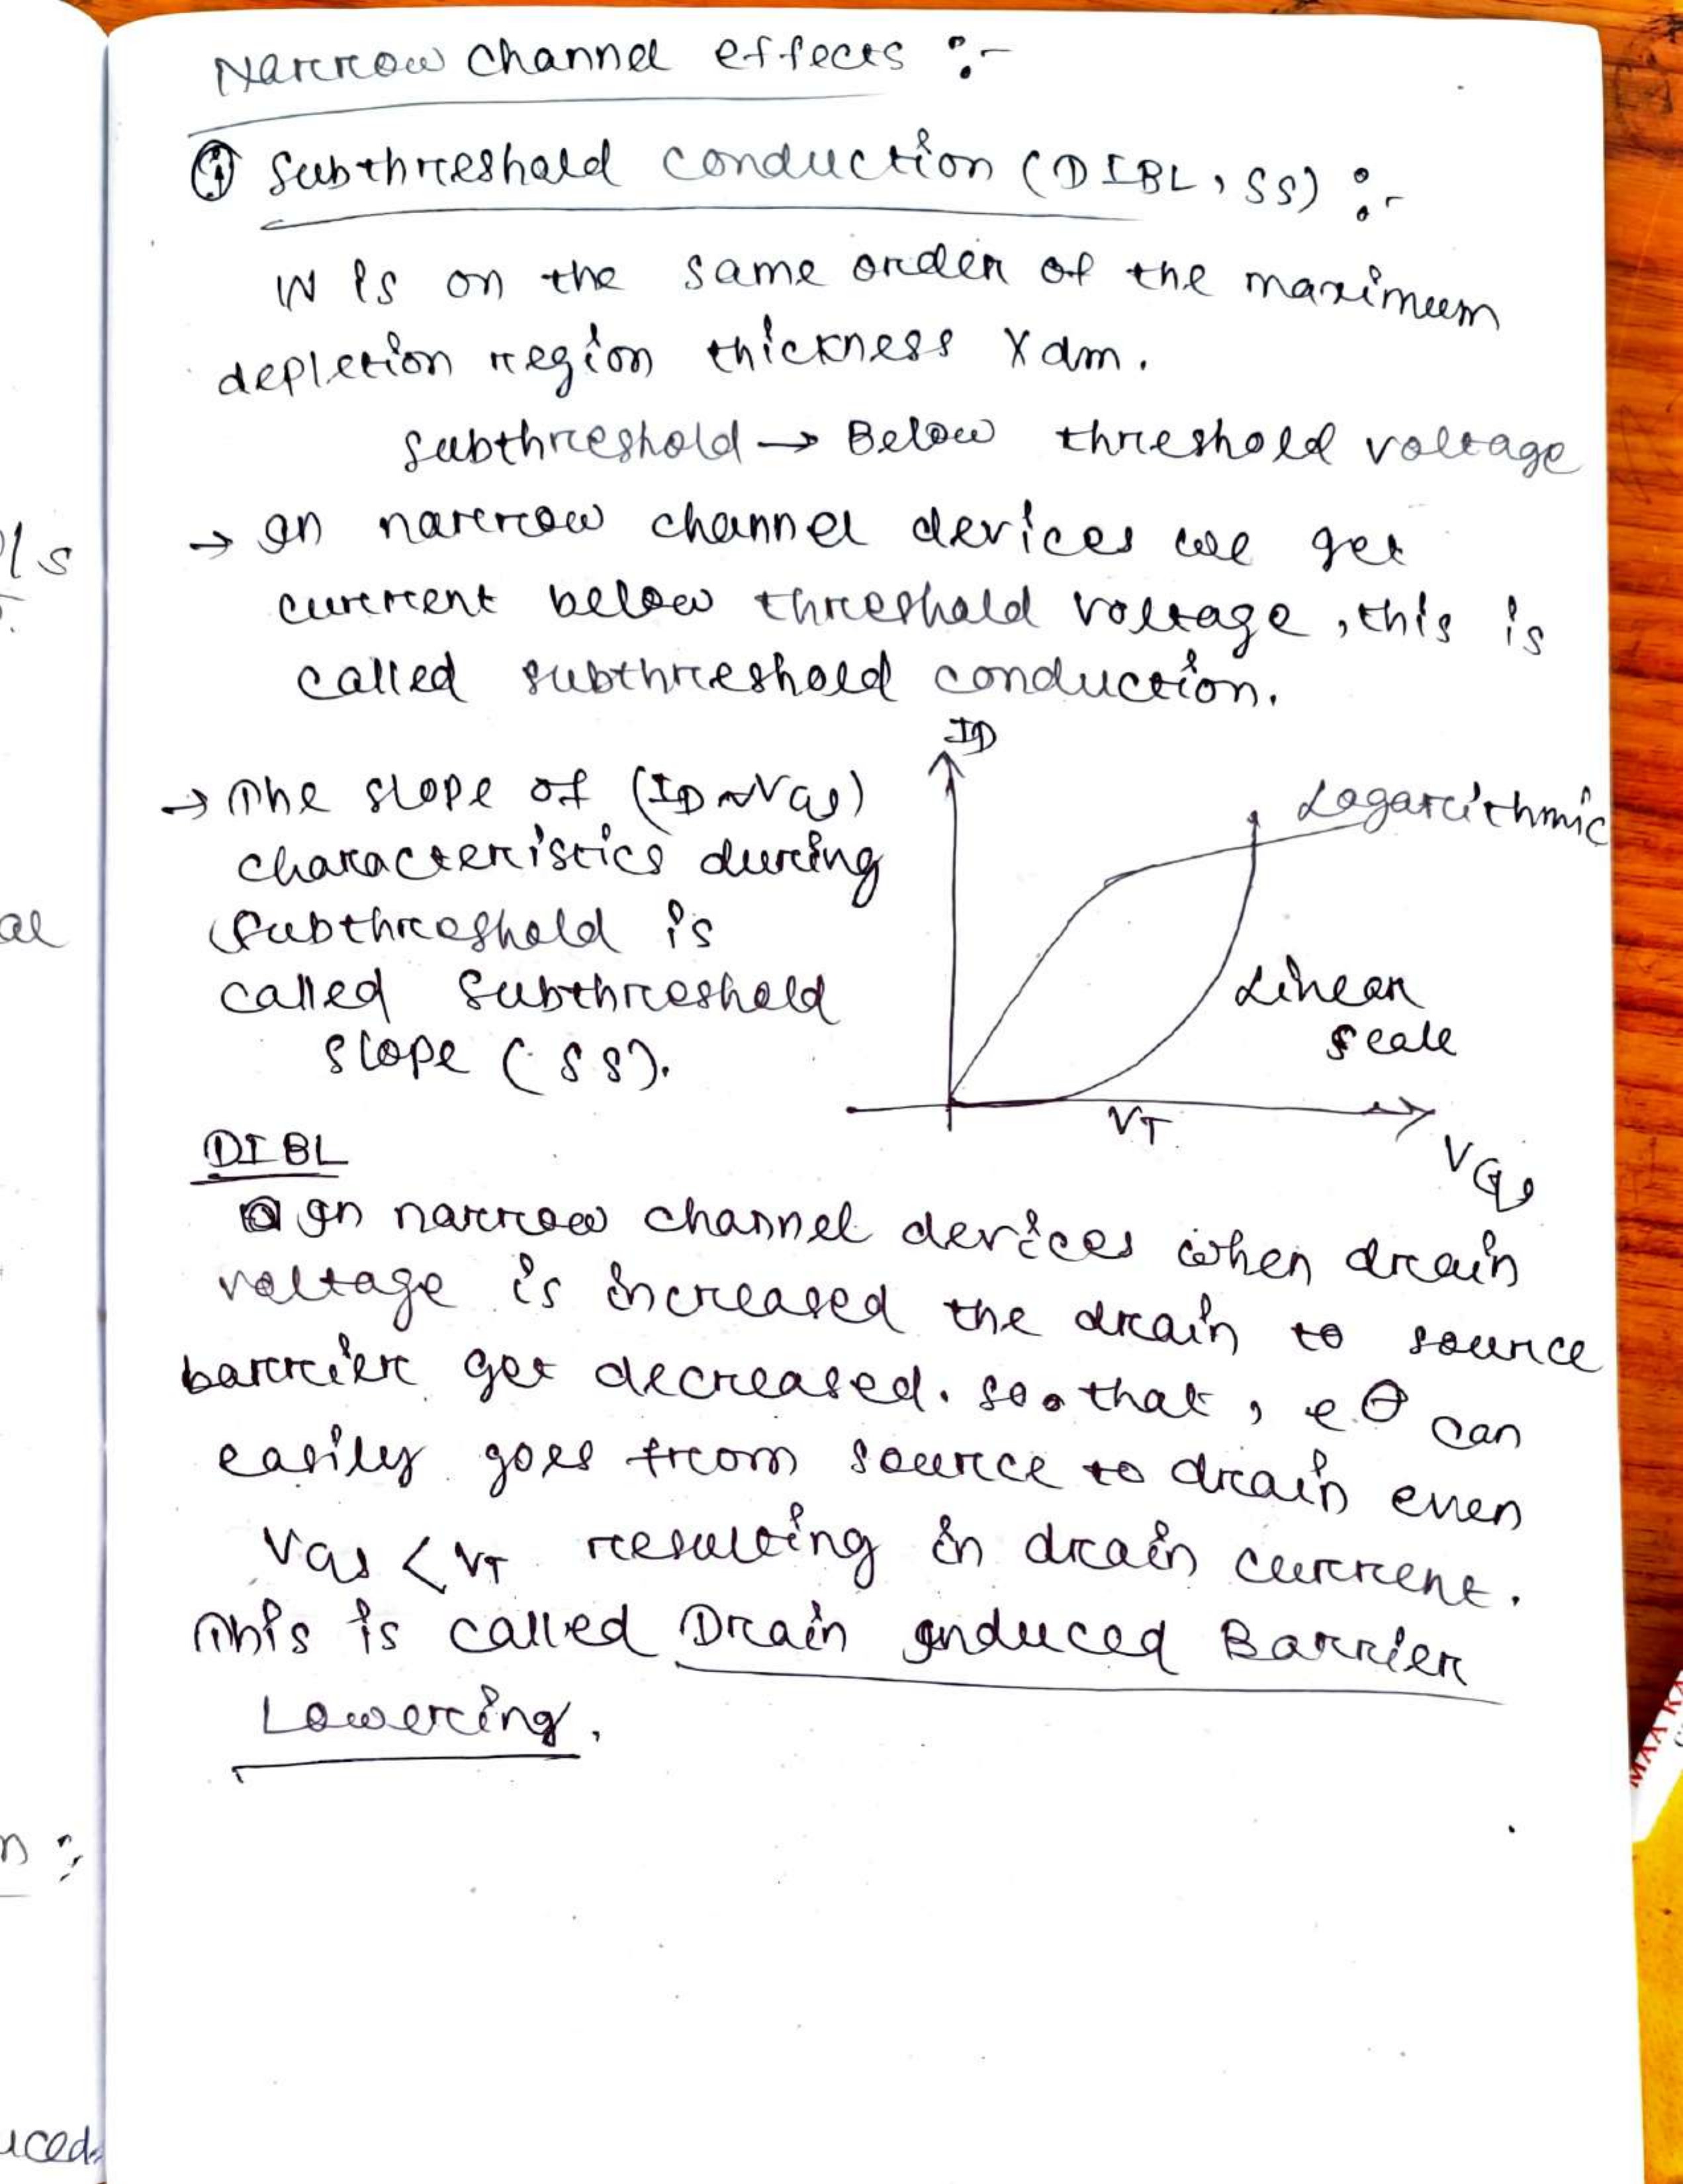 Narrow channel effects :-
① Subthreshold conduction (DIBL, SS) :-
W is on the same order of the maximum
depletion region thickness Xdm.
subthreshold → Below threshold voltage
→ In narrow channel devices we get
current below threshold voltage, this is
called subthreshold conduction.
→ The slope of (ID ~ VGS)
characteristics during
subthreshold is
called subthreshold
slope (SS).
ID
Logarithmic
Linear
scale
VT
VGS
DIBL
In narrow channel devices when drain
voltage is increased the drain to source
barrier get decreased. so that, e⊖ can
easily goes from source to drain even
VGS < VT resulting in drain current.
This is called Drain Induced Barrier
Lowering.
ls
al
n :
uced.
MAA